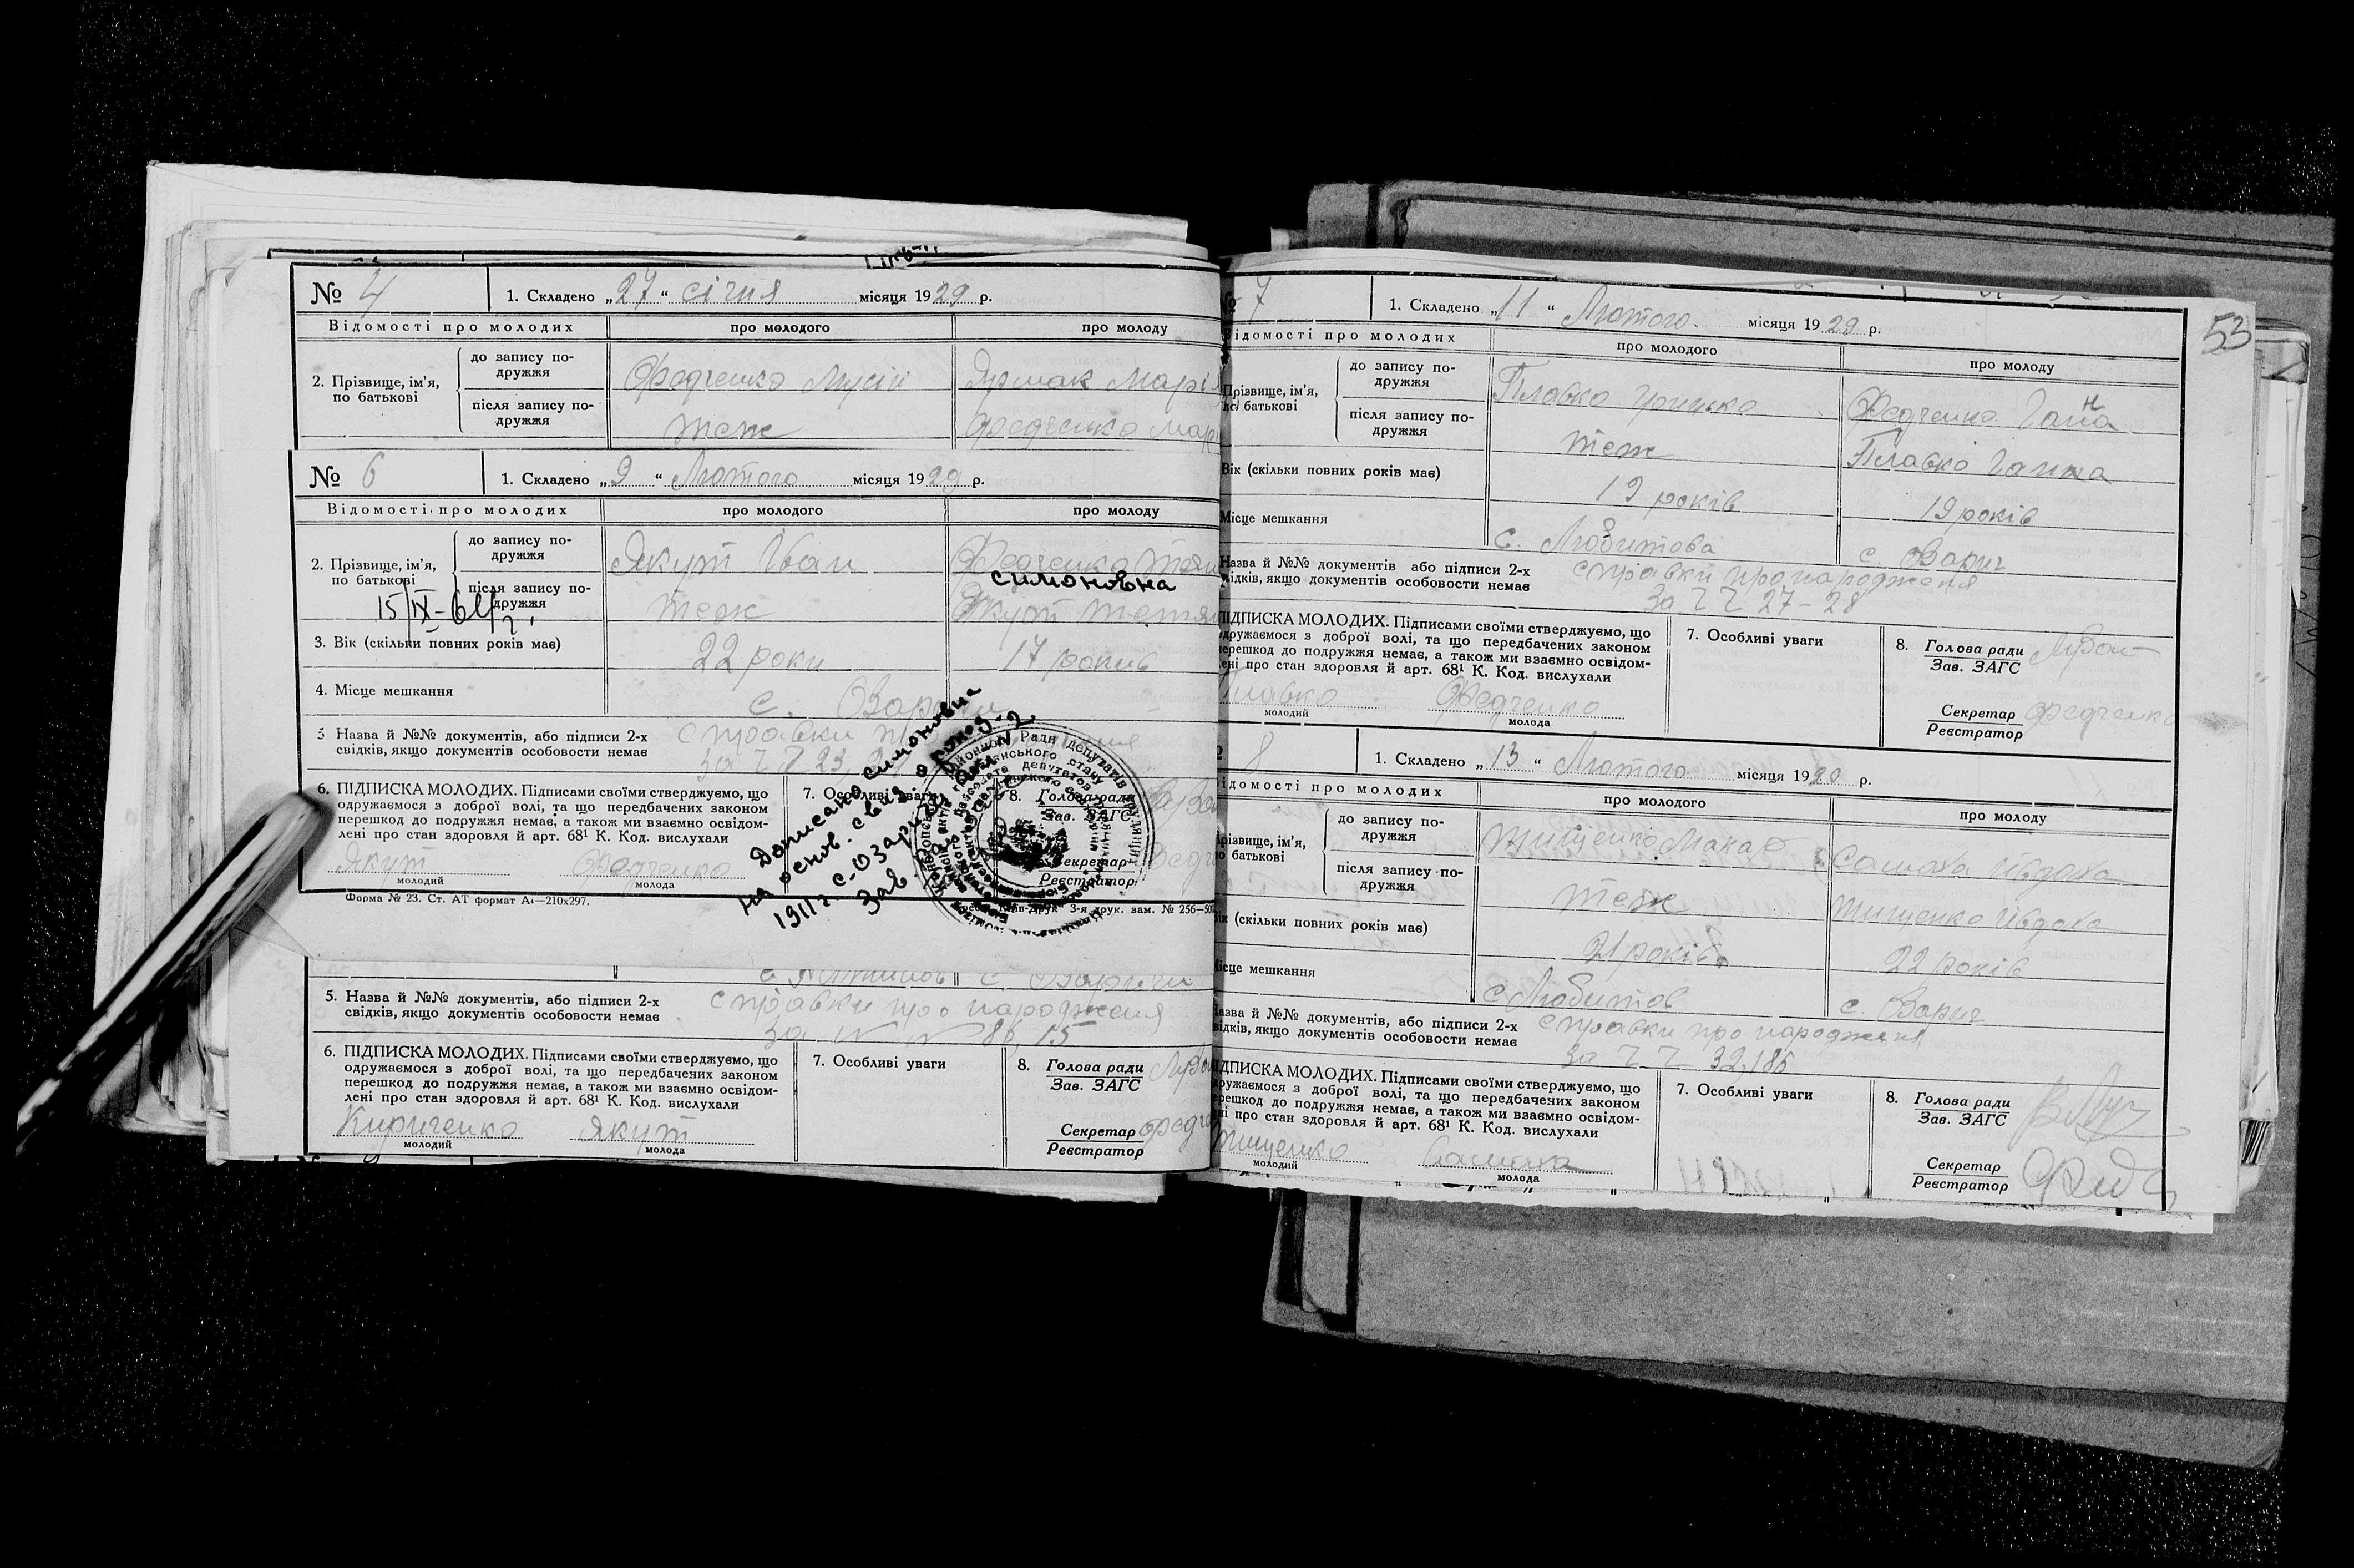 № 4 1. Складено „27“ січня місяця 1929 р.
Відомості про молодих про молодого про молоду
2. Прізвище, ім'я, по батькові
до запису по-
дружжя
Федченко Мусій Ярмак Марі
після запису по-
дружжя
теж Федченко Мар
№ 6 1. Складено „9“ Лютого місяця 1929 р.
Відомості про молодих про молодого про молоду
2. Прізвище, ім'я,
по батькові
до запису по-
дружжя
Якут Іван Федченко Тетя
симоновна
після запису по-
дружжя
теж Якут Тетя
15/IX-64 г.
3. Вік (скільки повних років має) 22 роки 17 років
4. Місце мешкання с. Озаричі
5 Назва й №№ документів, або підписи 2-х
свідків, якщо документів особовости немає
справки
за Ч Ч 23
6. ПІДПИСКА МОЛОДИХ. Підписами своїми стверджуємо, що
одружаємося з доброї волі, та що передбачених законом
перешкод до подружжя немає, а також ми взаємно освідом-
лені про стан здоровля й арт. 68¹ К. Код. вислухали
Якут Федченко
молодий молода
7. Особливі уваги
8. Голова ради
Зав. ЗАГС
Секретар
Реєстратор
Дописано симоновна
на основ. свид. о рожд.
1911 г с-Озаричи
Зав
Форма № 23. Ст. АТ формат А₄—210х297.
3-я друк. зам. № 256—500
5. Назва й №№ документів, або підписи 2-х
свідків, якщо документів особовости немає
справки про народженя
за № № 86, 15
6. ПІДПИСКА МОЛОДИХ. Підписами своїми стверджуємо, що
одружаємося з доброї волі, та що передбачених законом
перешкод до подружжя немає, а також ми взаємно освідом-
лені про стан здоровля й арт. 68¹ К. Код. вислухали
Кириченко Якут
молодий молода
7. Особливі уваги
8. Голова ради
Зав. ЗАГС
Секретар
Реєстратор
53
7 1. Складено „11“ Лютого місяця 1929 р.
ідомості про молодих про молодого про молоду
Прізвище, ім'я,
по батькові
до запису по-
дружжя
Плавко Грицько Федченко Ганна
після запису по-
дружжя
теж Плавко Ганна
Вік (скільки повних років має) 19 років 19 років
Місце мешкання с. Любитова с. Озарич
Назва й №№ документів або підписи 2-х
свідків, якщо документів особовости немає
справки про народженя
за Ч Ч 27-28
ПІДПИСКА МОЛОДИХ. Підписами своїми стверджуємо, що
одружаємося з доброї волі, та що передбачених законом
перешкод до подружжя немає, а також ми взаємно освідом-
лені про стан здоровля й арт. 68¹ К. Код. вислухали
Плавко Федченко
молодий молода
7. Особливі уваги
8. Голова ради
Зав. ЗАГС
Секретар Федченко
Реєстратор
8 1. Складено „13“ Лютого місяця 1929 р.
ідомості про молодих про молодого про молоду
Прізвище, ім'я,
по батькові
до запису по-
дружжя
Тищенко Макар Ївдоха
після запису по-
дружжя
теж Тищенко Ївдоха
Вік (скільки повних років має) 21 років 22 років
Місце мешкання с Любитов с. Озарич
Назва й №№ документів, або підписи 2-х
свідків, якщо документів особовости немає
справки про народженя
за Ч Ч 32,186
ПІДПИСКА МОЛОДИХ. Підписами своїми стверджуємо, що
одружаємося з доброї волі, та що передбачених законом
перешкод до подружжя немає, а також ми взаємно освідом-
лені про стан здоровля й арт. 68¹ К. Код. вислухали
Тищенко
молодий молода
7. Особливі уваги
8. Голова ради
Зав. ЗАГС
Секретар
Реєстратор